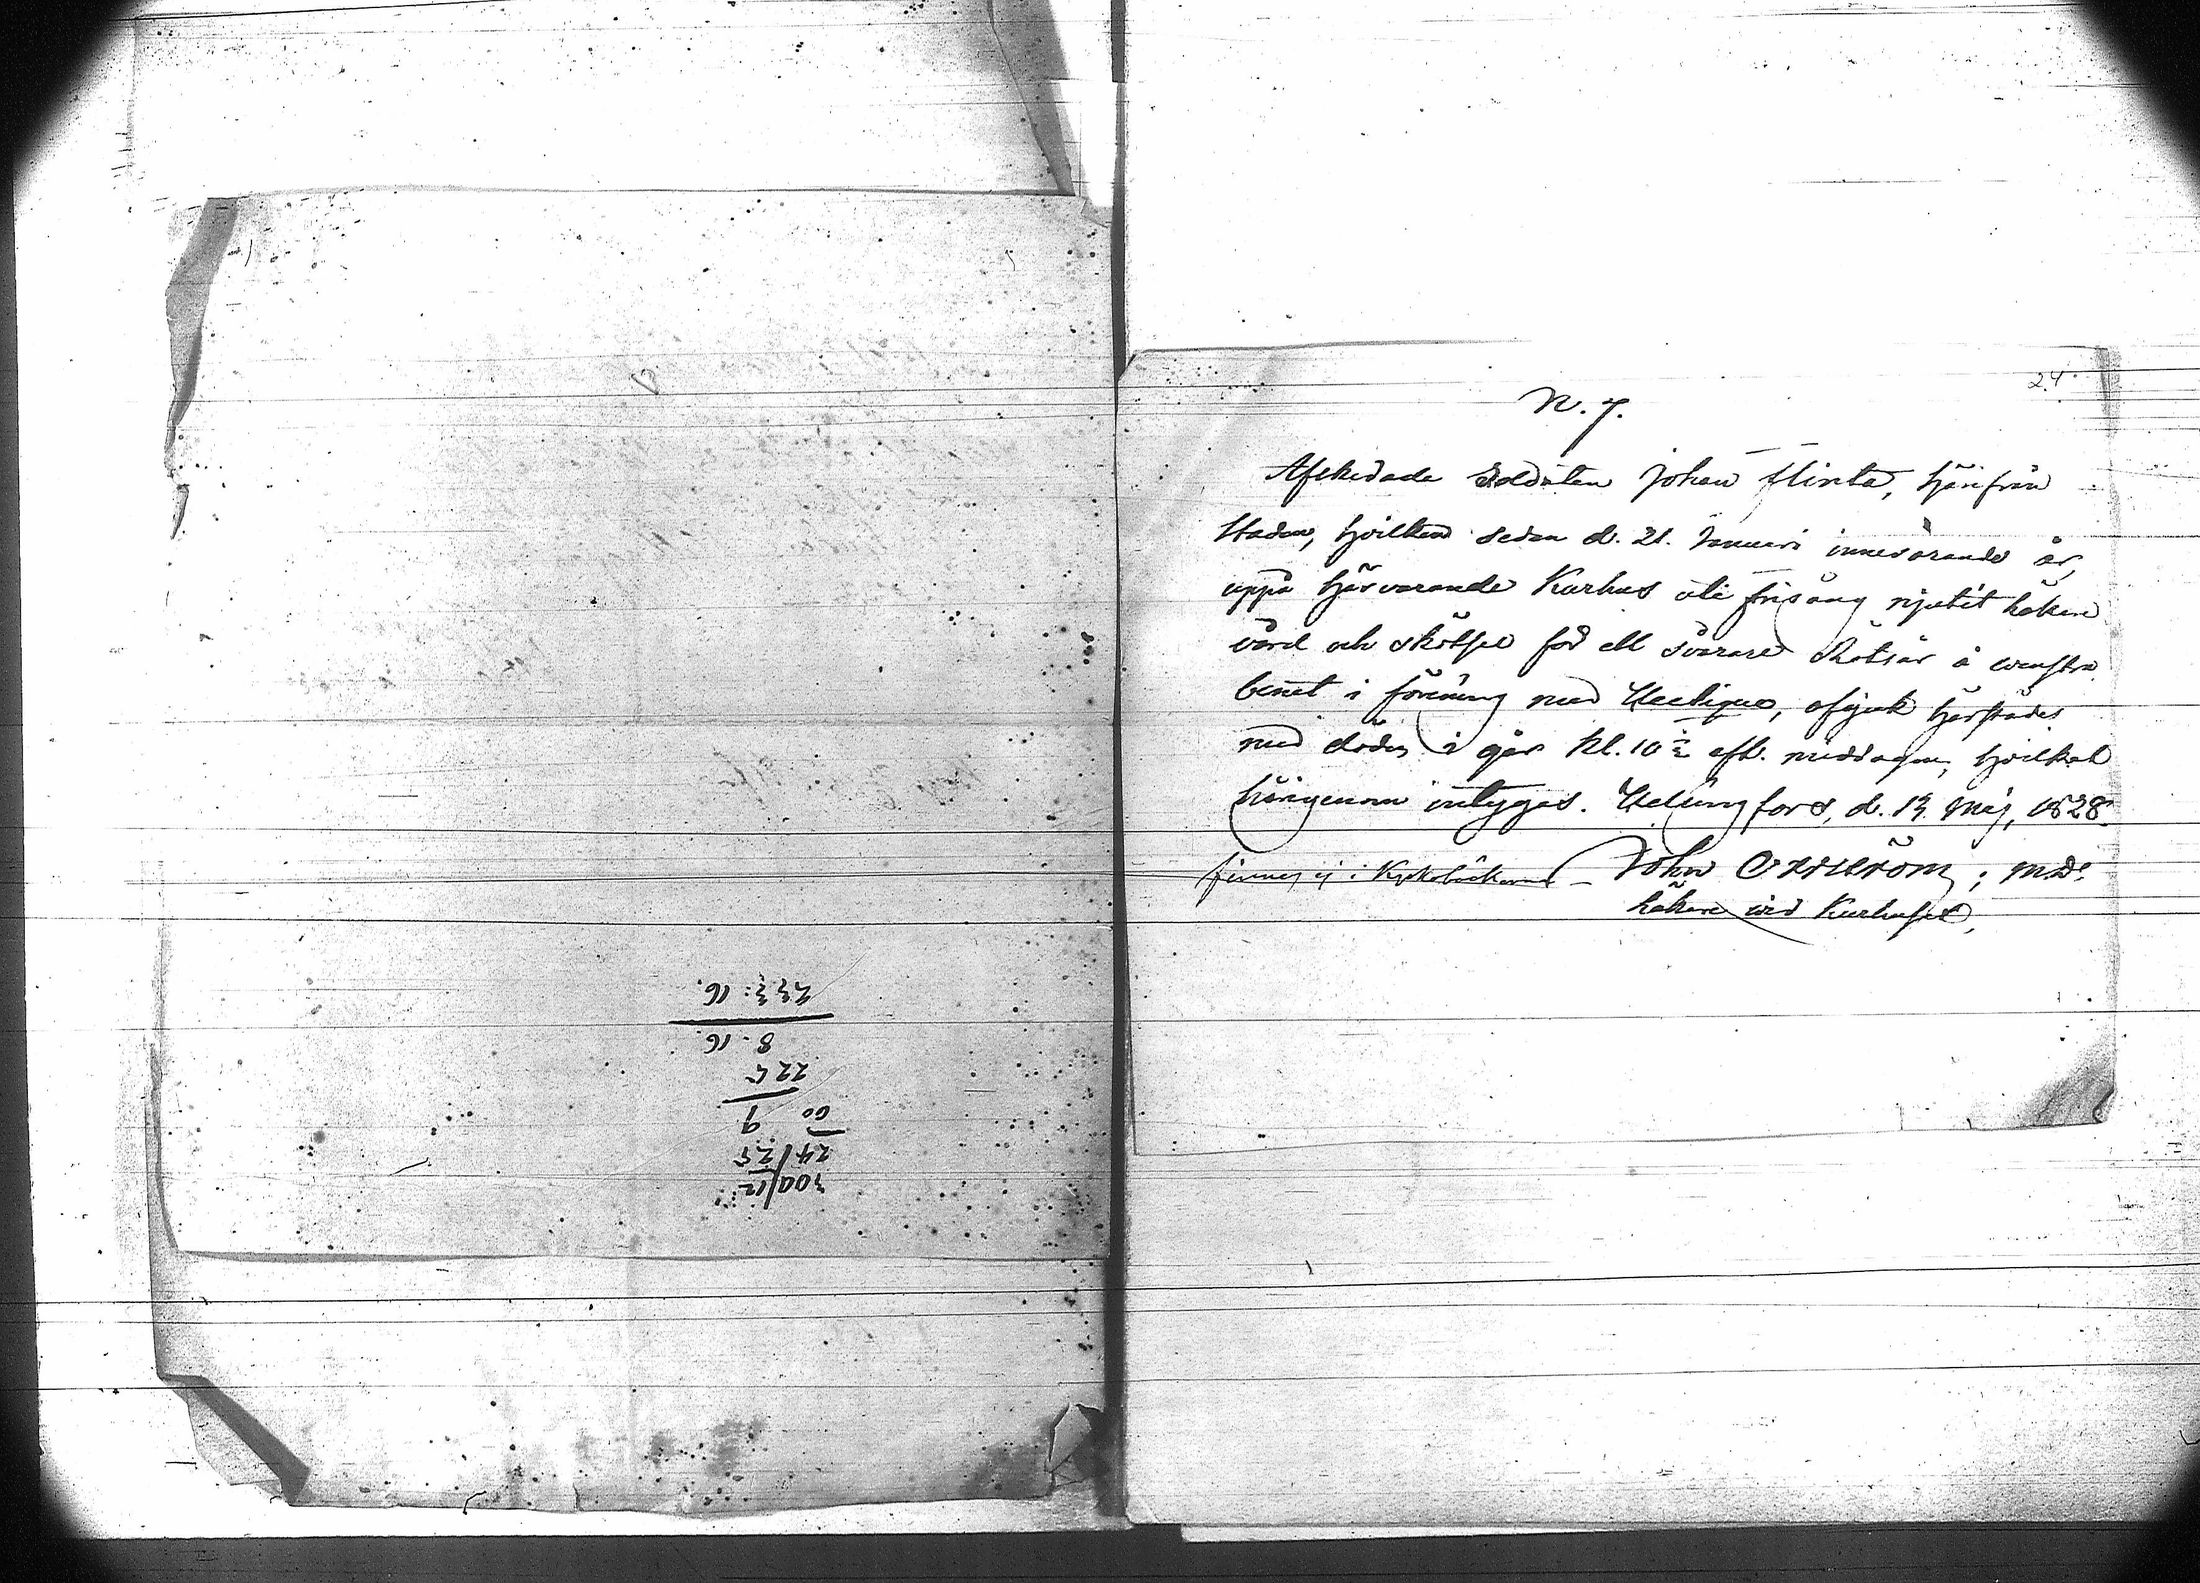 24.
N. 7.
Afskedade Soldaten Johan Flinta, härifrån
Staden, hvilken sedan d. 21. Januari innevarande år,
uppå härvarande Kurhus uti frisäng njutit läkare
vård och skötsel för ett svårare skotsår å wenstra
benet i förening med Hectique, afgick härstädes
med döden i går kl. 10½ eft. middagen, hvilket
härigenom intygas. Helsingfors, d. 13. Maj, 1828.
John Orrström; M.D.
finnes ej i Kyrkoböckerne
läkare wid Kurhuset.
300/12
24/25
60 9
225
8. 16.
233: 16.